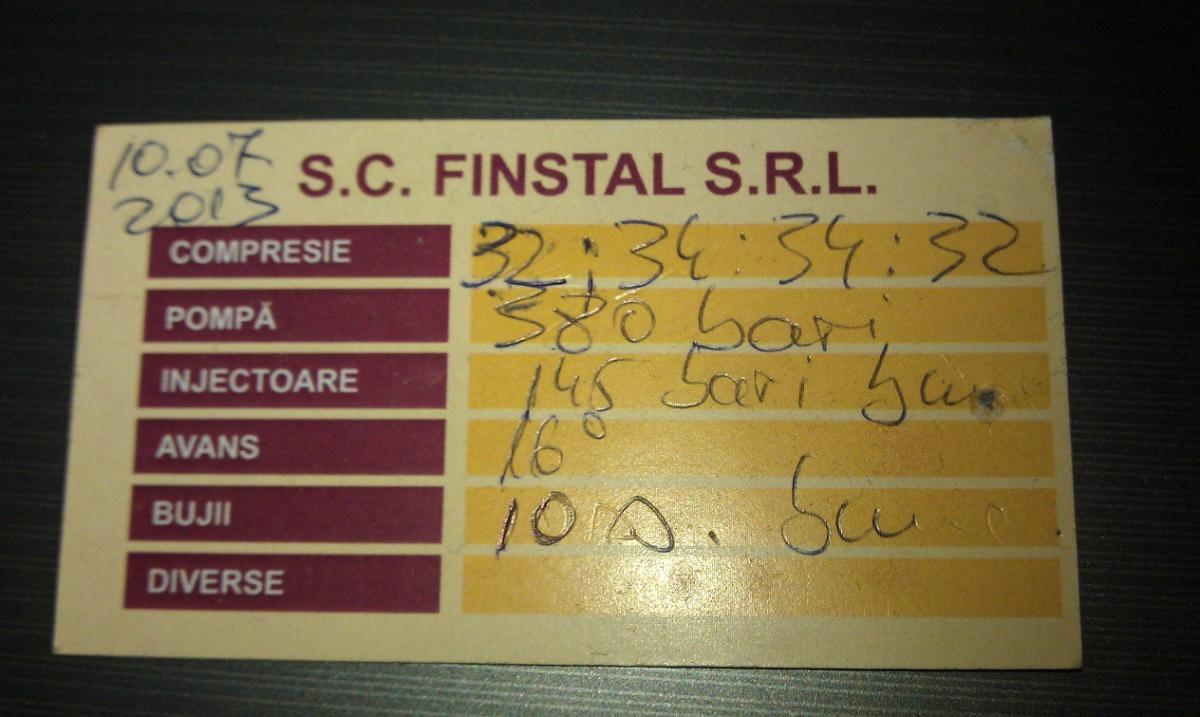 10.07
2013
S.C. FINSTAL S.R.L.
COMPRESIE 32 ; 34 . 34 : 32
POMPĂ 580 bari
INJECTOARE 145 bari
AVANS 16°
BUJII 10
DIVERSE